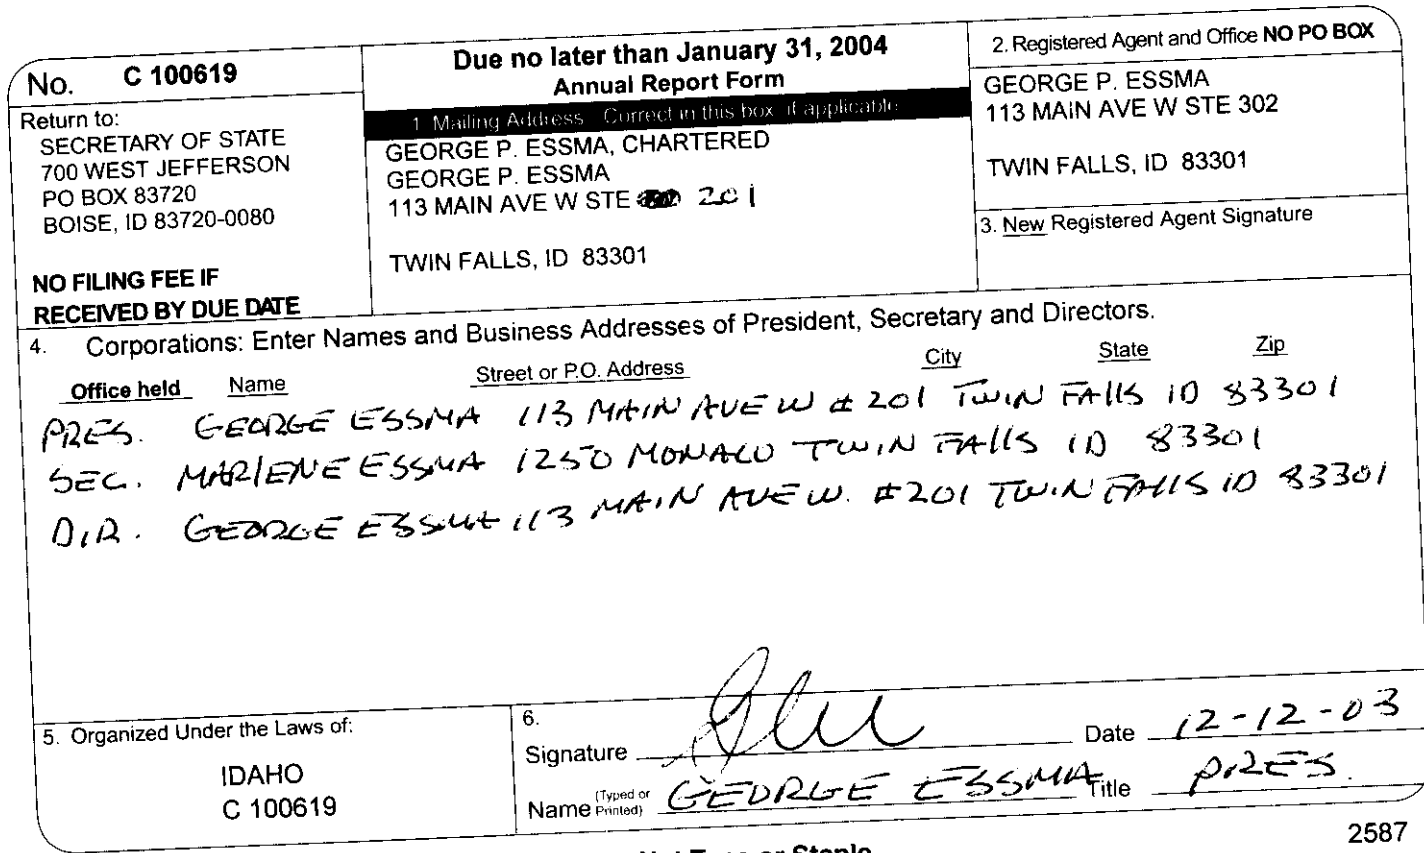 No. C 100619
Return to:
SECRETARY OF STATE
700 WEST JEFFERSON
PO BOX 83720
BOISE, ID 83720-0080
NO FILING FEE IF
RECEIVED BY DUE DATE
Due no later than January 31, 2004
Annual Report Form
1. Mailing Address. Correct in this box, if applicable.
GEORGE P. ESSMA, CHARTERED
GEORGE P. ESSMA
113 MAIN AVE W STE 201
TWIN FALLS, ID 83301
2. Registered Agent and Office NO PO BOX
GEORGE P. ESSMA
113 MAIN AVE W STE 302
TWIN FALLS, ID 83301
3. New Registered Agent Signature
4. Corporations: Enter Names and Business Addresses of President, Secretary and Directors.
Office held Name Street or P.O. Address City State Zip
PRES. GEORGE ESSMA 113 MAIN AVE W # 201 TWIN FAllS ID 83301
SEC. MARlENE ESSMA 1250 MONACO TWIN FAllS ID 83301
DIR. GEORGE ESSMA 113 MAIN AVE W. #201 TWIN FAllS ID 83301
5. Organized Under the Laws of:
IDAHO
C 100619
6.
Signature Date 12-12-03
Name (Typed or Printed) GEORGE ESSMA Title PRES.
2587